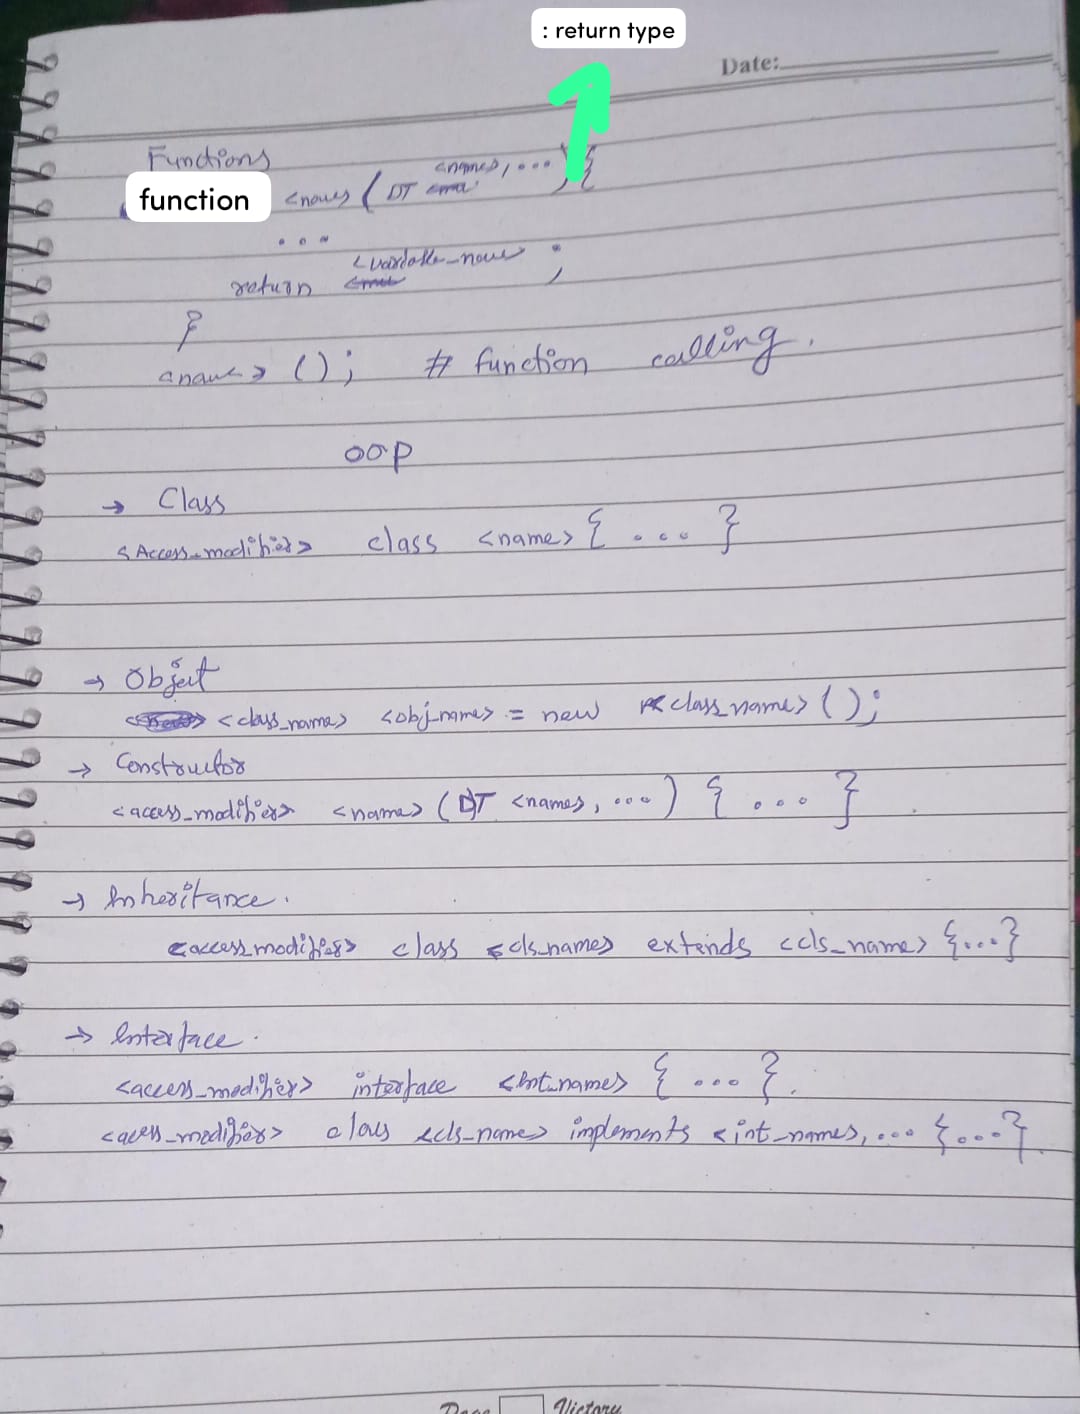 : return type
Date:
Functions
function <name> (DT <name>, ...) {
...
return <variable_name> ;
}
<name> (); # function calling.
OOP
→ Class
<Access_modifier> class <name> { ... }
→ Object
<class_name> <obj_name> = new <class_name> ();
→ Constructor
<access_modifier> <name> (DT <name>, ...) { ... }
→ Inheritance.
<access_modifier> class <cls_name> extends <cls_name> {...}
→ Interface.
<access_modifier> interface <Int_name> { ... }.
<acess_modifier> class <cls_name> implements <int_name>, ... {...}.
Page Victory